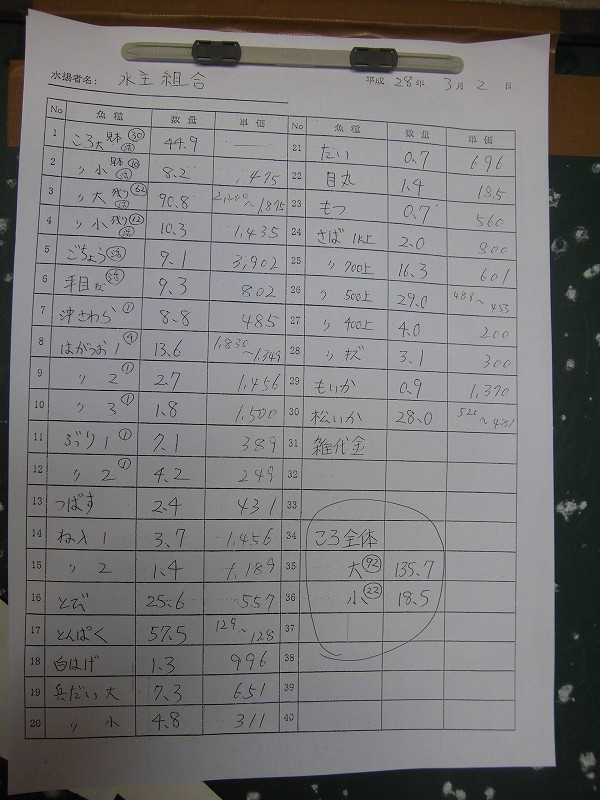 水揚者名: 水主組合
平成 28年 3月 2日
No 魚種 数量 単価
1 ころ大 見本 ㉚ 活 44.9
2 〃小 見本 ⑩ 活 8.2 1,475
3 〃大 残り 62 活 90.8 2,200〜1,875
4 〃小 残り ⑫ 活 10.3 1,435
5 ごちょう 活 9.1 3,902
6 平目 活 9.3 802
7 沖さわら ① 8.8 485
8 はがつお1 ④ 13.6 1,830〜1,349
9 〃 2 ① 2.7 1,456
10 〃 3 ① 1.8 1,500
11 ぶり1 ① 7.1 389
12 〃 2 ① 4.2 249
13 つばす 2.4 431
14 ね入1 3.7 1,456
15 〃 2 1.4 1,189
16 とび 25.6 557
17 とんぱく 57.5 129〜128
18 白はげ 1.3 996
19 兵だい 大 7.3 651
20 〃 小 4.8 311
No 魚種 数量 単価
21 たい 0.7 696
22 目丸 1.4 185
23 もつ 0.7 560
24 さば 1K上 2.0 800
25 〃 700上 16.3 601
26 〃 500上 29.0
27 〃 400上 4.0 200
28 〃 キズ 3.1 300
29 もいか 0.9 1,370
30 松いか 28.0
31 雑代金
32
33
34 ころ全体
35 大 92 135.7
36 小 ㉒ 18.5
37
38
39
40